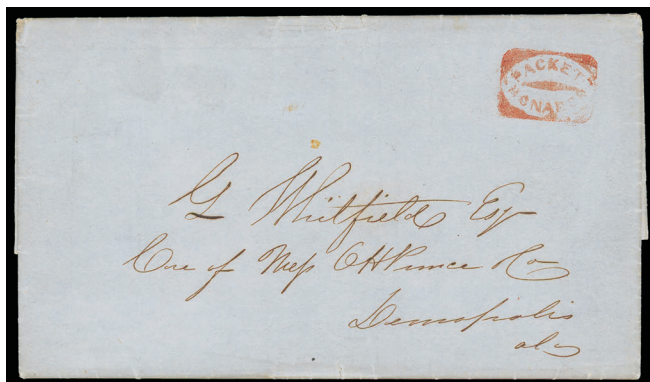 PACKET
MONARCH
G Whitfield Esqr
Care of Mess C H Prince & Co
Demopolis
Ala